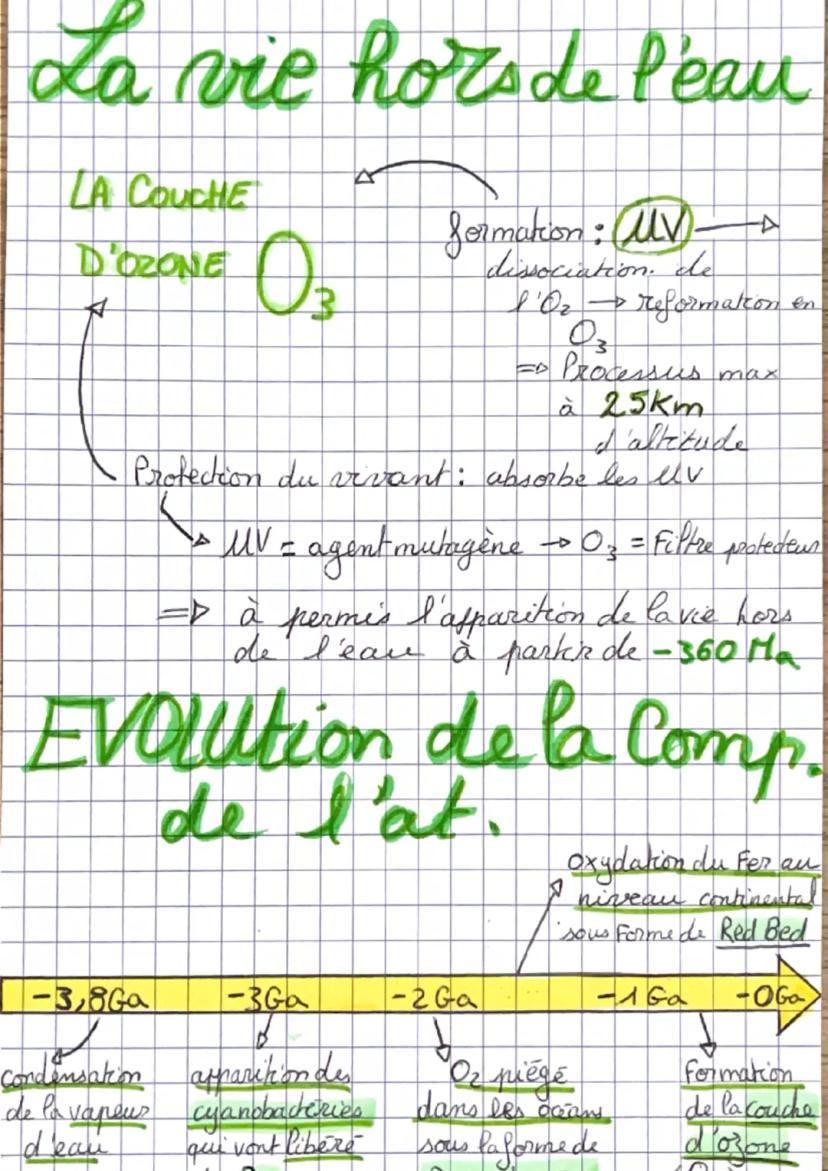 La vie hors de l'eau
LA COUCHE
D'OZONE O3
formation : UV →
dissociation de
l'O2 → reformation en
O3
=> Processus max
à 25Km
d'altitude
Protection du vivant : absorbe les UV
UV = agent mutagène → O3 = Filtre protecteur
=> à permis l'apparition de la vie hors
de l'eau à partir de -360 Ma
EVOLUtion de la Comp.
de l'at.
Oxydation du Fer au
niveau continental
sous forme de Red Bed
-3,8Ga -3Ga -2Ga -1Ga -0Ga
condensation
de la vapeur
d'eau
apparition des
cyanobactéries
qui vont libéré
O2 piégé
dans les océans
sous la forme de
Formation
de la couche
d'ozone